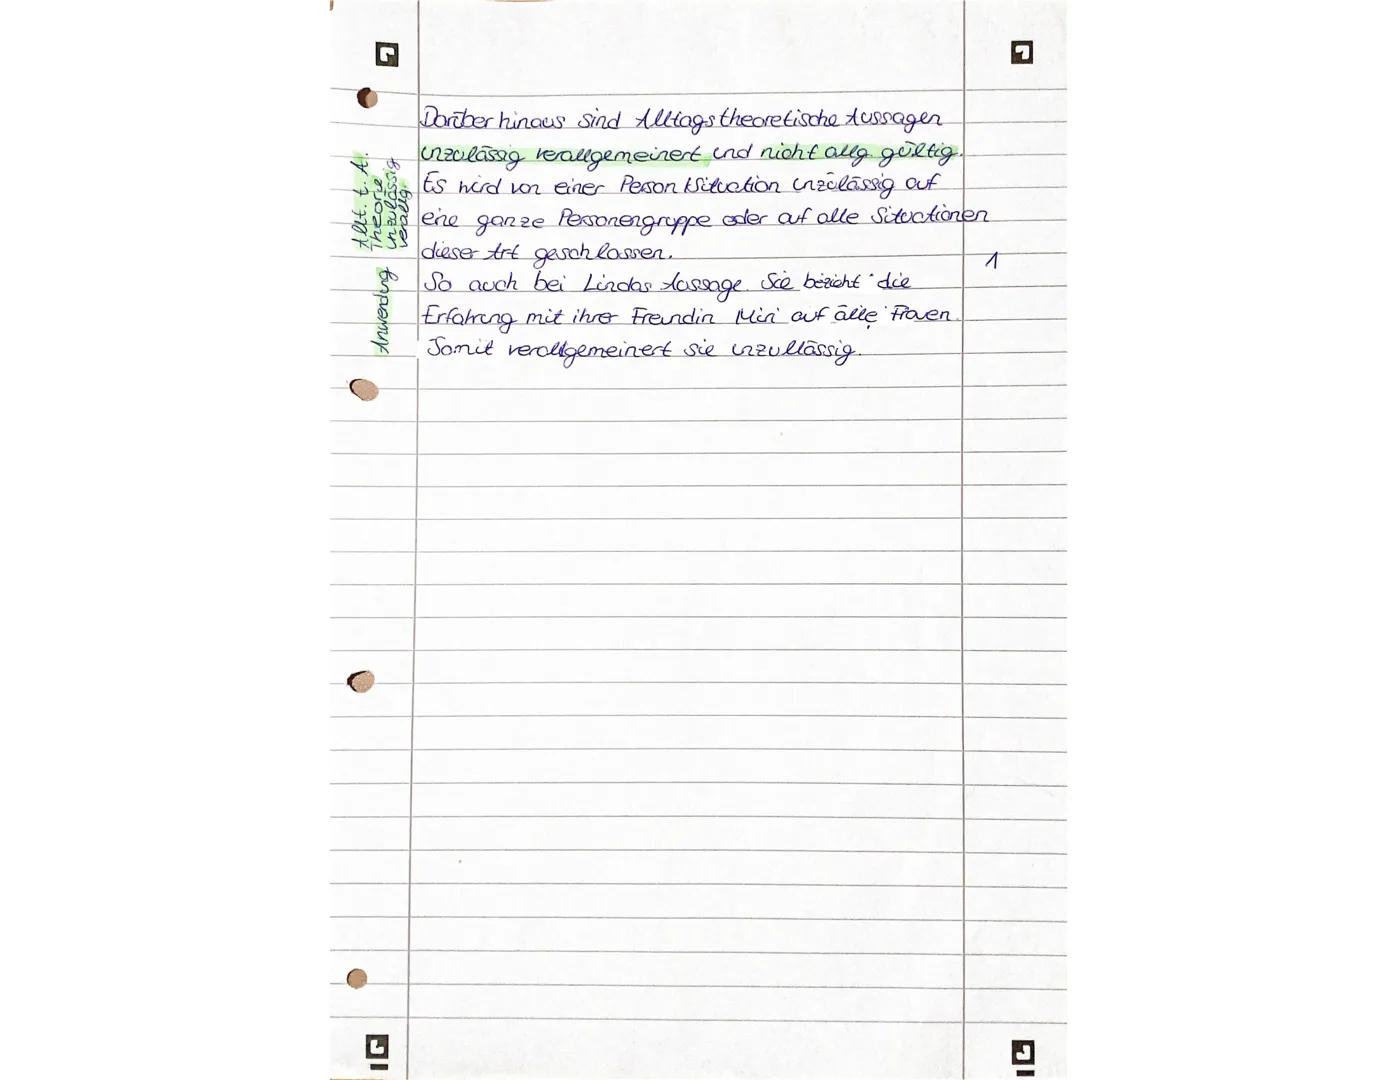 Darüber hinaus sind Alltagstheoretische Aussagen
unzulässig verallgemeinert und nicht allg. gültig.
Es wird von einer Person /Situation unzulässig auf
eine ganze Personengruppe oder auf alle Situationen
dieser Art geschlossen.
So auch bei Lindas Aussage. Sie bezieht die
Erfahrung mit ihrer Freundin Miri auf alle Frauen.
Somit verallgemeinert sie unzullässig.
Allt. t. A.
Theorie
unzulässig
verallg.
Anwendung
1